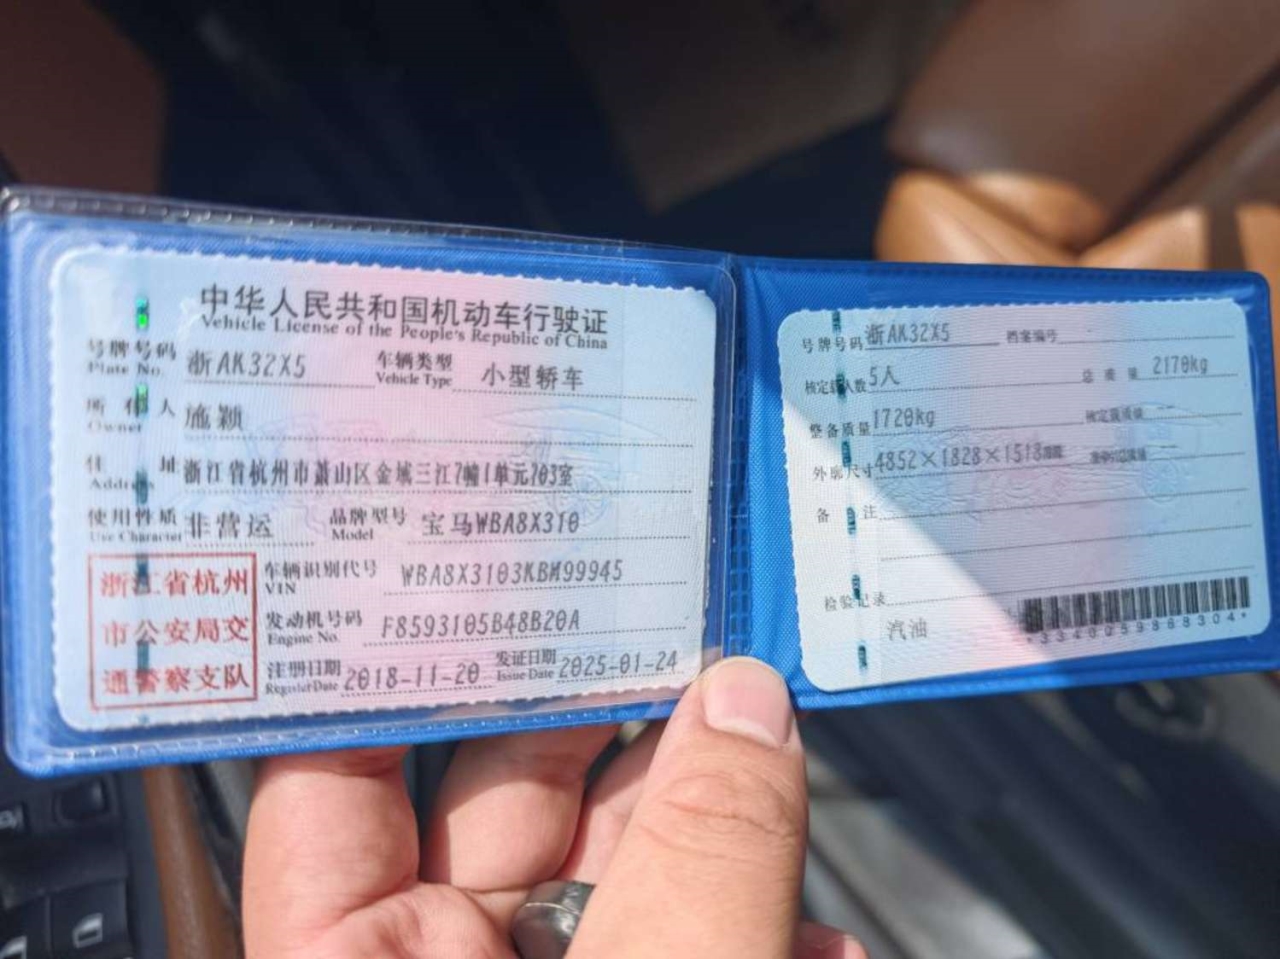 中华人民共和国机动车行驶证
Vehicle License of the People's Republic of China
号牌号码 浙AK32X5 车辆类型 小型轿车
Plate No. Vehicle Type
所有人 施颖
Owner
住址 浙江省杭州市萧山区金域三江7幢1单元703室
Address
使用性质 非营运 品牌型号 宝马WBA8X310
Use Character Model
浙江省杭州
市公安局交
通警察支队
车辆识别代号 WBA8X3103KBM99945
VIN
发动机号码 F8593105B48B20A
Engine No.
注册日期 2018-11-20 发证日期 2025-01-24
Register Date Issue Date
号牌号码 浙AK32X5 档案编号
核定载人数 5人 总质量 2170kg
整备质量 1720kg 核定载质量 --
外廓尺寸 4852×1828×1513 --
备注
检验记录
汽油
*3340259868304*